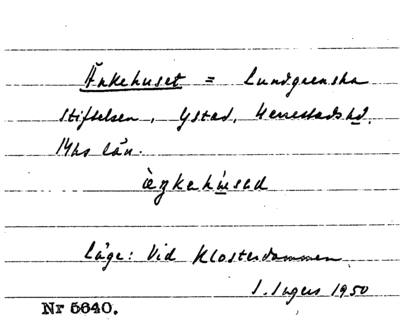 Änkehuset = Lundgrenska
stiftelsen, Ystad, Herrestads hd.
Mhs län.
Läge: Vid Klosterdammen
I. Ingers 1950
Nr 5640.